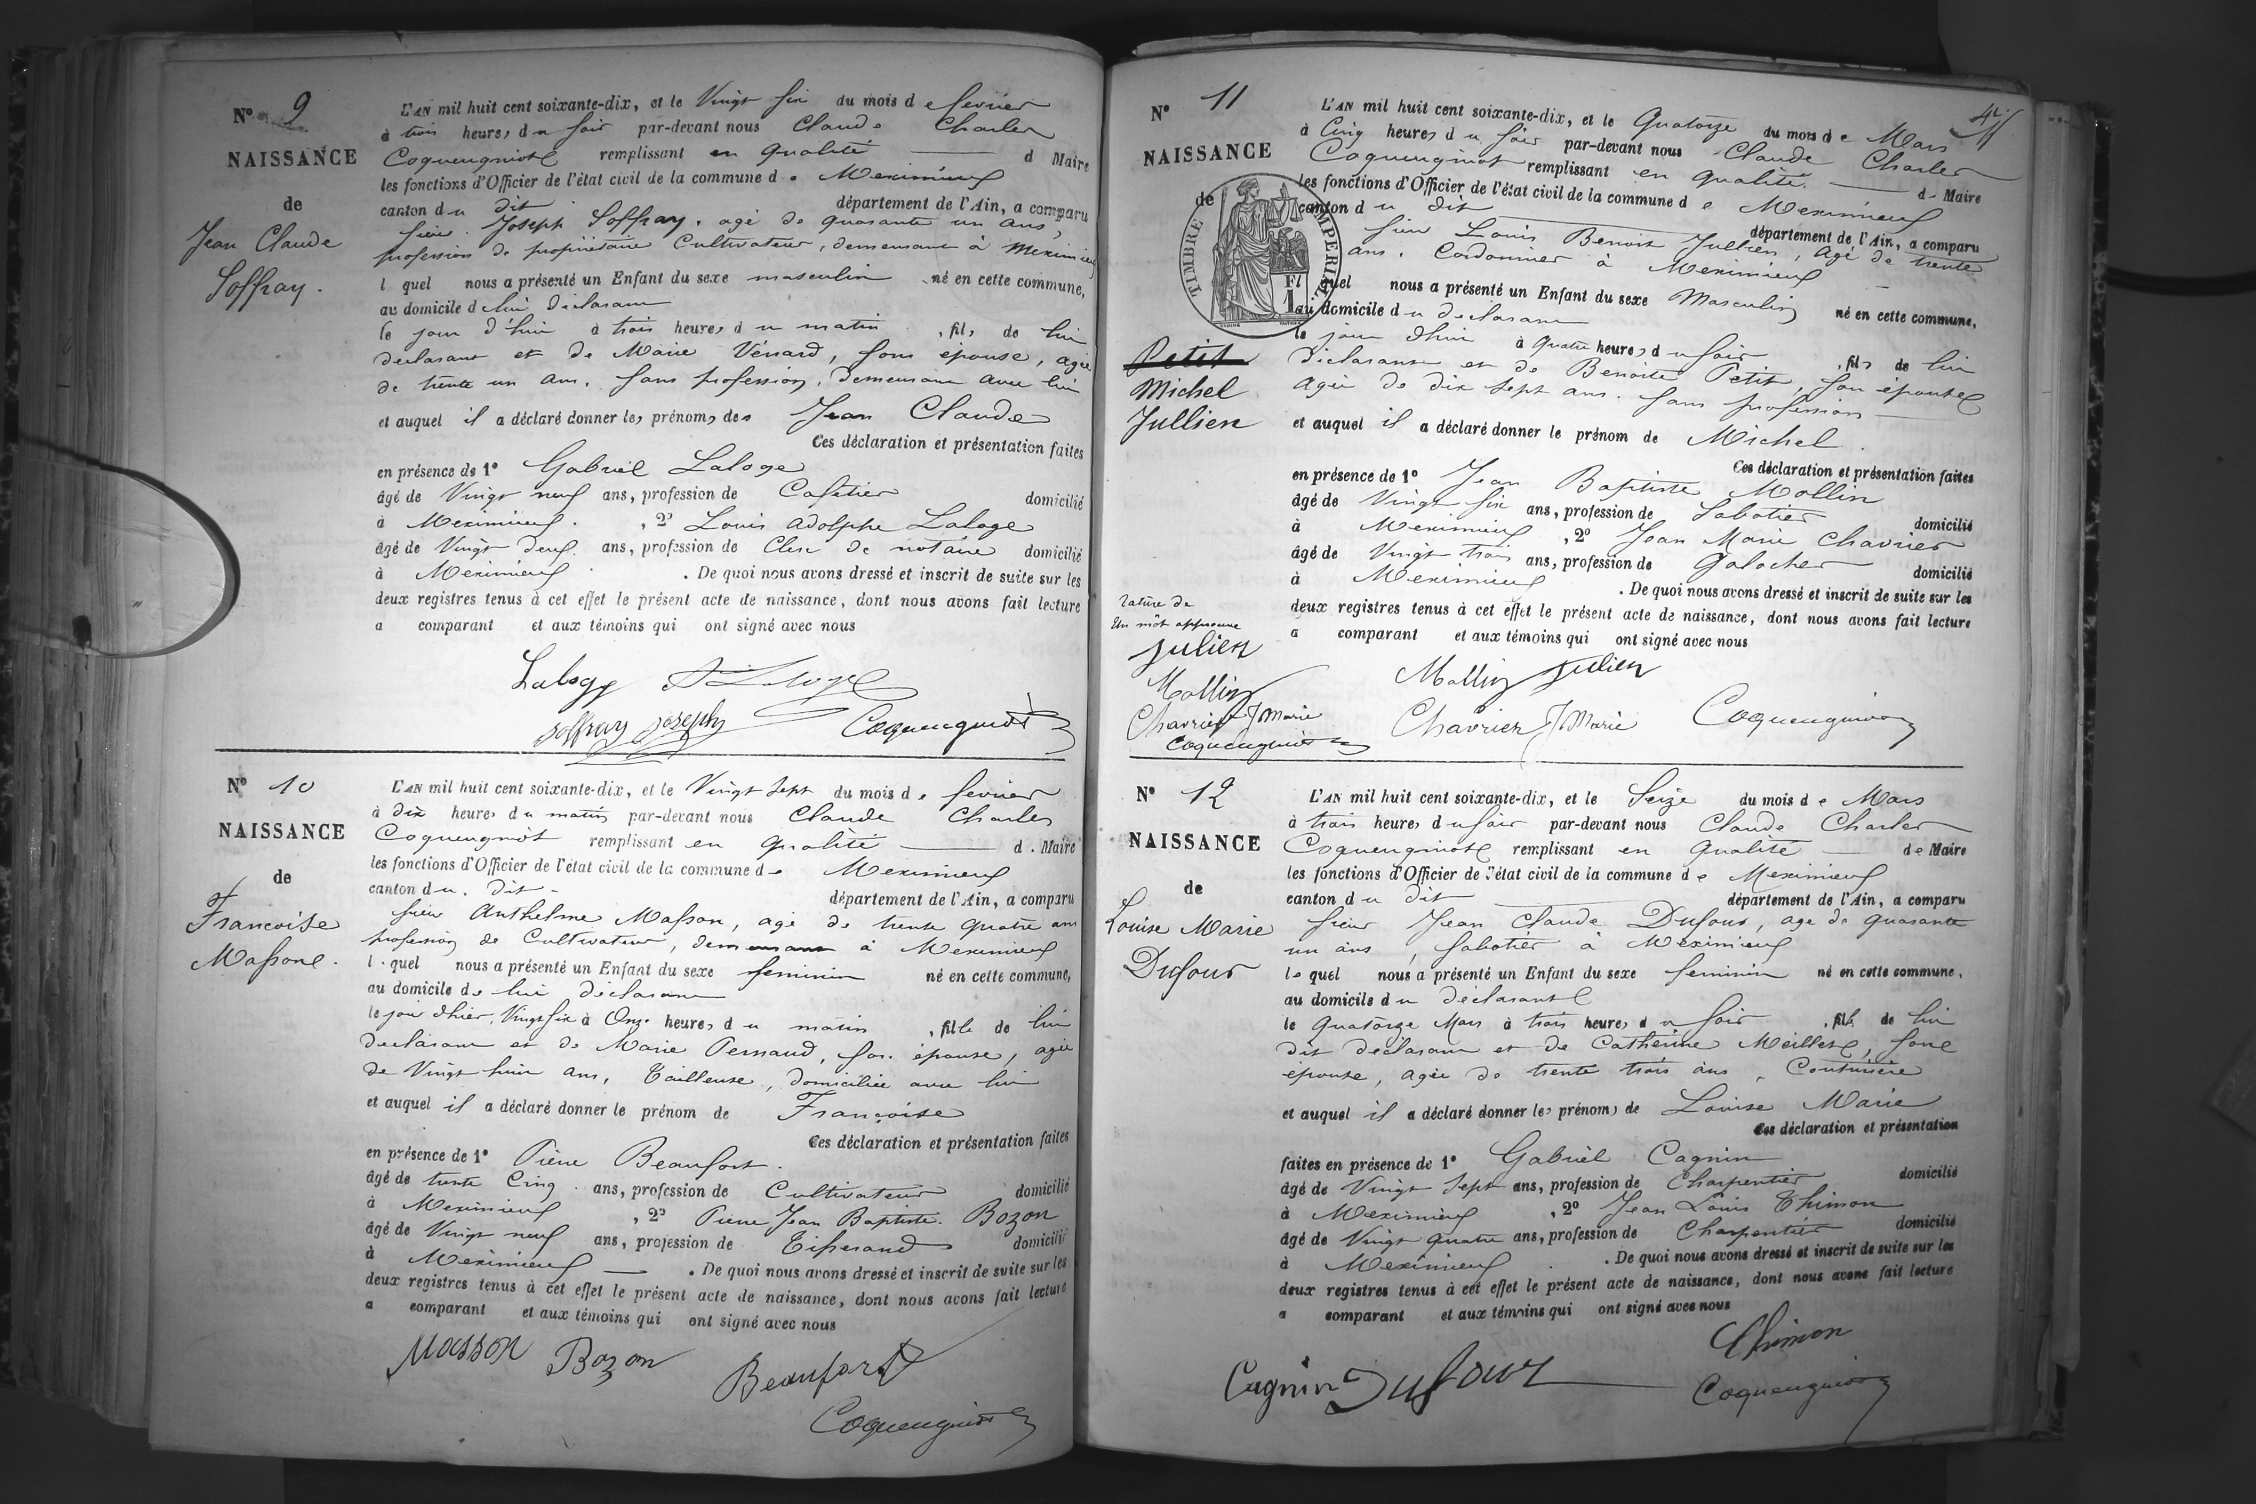 N° 9
NAISSANCE
de
Jean Claude
Soffray.
L'AN mil huit cent soixante-dix, et le Vingt six du mois de fevrier
à trois heures du soir par-devant nous Claude Charles
Coqueugniot remplissant en qualité d Maire
les fonctions d'Officier de l'état civil de la commune de Meximieux
canton du dit département de l'Ain, a comparu
sieur Joseph Soffray, agé de quarante un ans,
profession de propriétaire Cultivateur, demeurant à Meximieux
lequel nous a présenté un Enfant du sexe masculin né en cette commune,
au domicile de lui déclarant
le jour d'hui à trois heures du matin, fils de lui
déclarant et de Marie Vénard, son épouse, agée
de trente un ans, sans profession, demeurant avec lui
et auquel il a déclaré donner les prénoms des Jean Claude
Ces déclaration et présentation faites
en présence de 1° Gabriel Laloge
âgé de Vingt neuf ans, profession de Cafetier domicilié
à Meximieux, 2° Louis Adolphe Laloge
âgé de Vingt deux ans, profession de Clerc de notaire domicilié
à Meximieux. De quoi nous avons dressé et inscrit de suite sur les
deux registres tenus à cet effet le présent acte de naissance, dont nous avons fait lecture
a comparant et aux témoins qui ont signé avec nous
Laloge A Laloge
Soffray Joseph Coqueugniot
N° 10
NAISSANCE
de
Francoise
Massone.
L'AN mil huit cent soixante-dix, et le Vingt sept du mois de fevrier
à dix heures du matin par-devant nous Claude Charles
Coqueugniot remplissant en qualité d. Maire
les fonctions d'Officier de l'état civil de la commune de Meximieux
canton du. dit département de l'Ain, a comparu
sieur Anthelme Masson, agé de trente quatre ans
profession de Cultivateur, demeurant à Meximieux
lequel nous a présenté un Enfant du sexe feminin né en cette commune,
au domicile de lui déclarant
le jour d'hier, Vingt six à Onze heures du matin, fille de lui
déclarant et de Marie Pernaud, son épouse, agée
de Vingt huit ans, Tailleuse, domiciliée avec lui
et auquel il a déclaré donner le prénom de Françoise
Ces déclaration et présentation faites
en présence de 1° Pierre Beaufort.
âgé de trente Cinq ans, profession de Cultivateur domicilié
à Meximieux, 2° Pierre Jean Baptiste Bozon
âgé de Vingt neuf ans, profession de Tisserand domicilié
à Meximieux. De quoi nous avons dressé et inscrit de suite sur les
deux registres tenus à cet effet le présent acte de naissance, dont nous avons fait lecture
a comparant et aux témoins qui ont signé avec nous
Masson Bozon Beaufort
Coqueugniot
N° 11
NAISSANCE
de
TIMBRE IMPERIAL
1 Fr
Petit
Michel
Jullien
L'AN mil huit cent soixante-dix, et le Quatorze du mois de Mars
à Cinq heures du soir par-devant nous Claude Charles
Coqueugniot remplissant en qualité d. Maire
les fonctions d'Officier de l'état civil de la commune de Meximieux
canton du dit département de l'Ain, a comparu
sieur Louis Benoit Jullien, Agé de trente
ans, Cordonnier à Meximieux
lequel nous a présenté un Enfant du sexe Masculin né en cette commune,
au domicile du déclarant
le jour d'hui à Quatre heures du soir, fils de lui
déclarant et de Benoite Petit, son épouse
Agée de dix sept ans, sans profession
et auquel il a déclaré donner le prénom de Michel
Ces déclaration et présentation faites
en présence de 1° Jean Baptiste Mollin
âgé de Vingt six ans, profession de Sabotier domicilié
à Meximieux, 2° Jean Marie Chavrier
âgé de Vingt trois ans, profession de Galocher domicilié
à Meximieux. De quoi nous avons dressé et inscrit de suite sur les
deux registres tenus à cet effet le présent acte de naissance, dont nous avons fait lecture
a comparant et aux témoins qui ont signé avec nous
rature de
un mot approuvé
Julien
Mollin
Chavrier J Marie
Coqueugniot
Mollin Julien
Chavrier J Marie Coqueugniot
N° 12
NAISSANCE
de
Louise Marie
Dufour
L'AN mil huit cent soixante-dix, et le Seize du mois de Mars
à trois heures du soir par-devant nous Claude Charles
Coqueugniot remplissant en qualité de Maire
les fonctions d'Officier de l'état civil de la commune de Meximieux
canton du dit département de l'Ain, a comparu
sieur Jean Claude Dufour, agé de quarante
un ans, sabotier à Meximieux
lequel nous a présenté un Enfant du sexe feminin né en cette commune,
au domicile du déclarant
le Quatorze Mars à trois heures du soir, fille de lui
dit déclarant et de Catherine Meillet, son
épouse, agée de trente trois ans, Couturière
et auquel il a déclaré donner les prénoms de Louise Marie
Ces déclaration et présentation
faites en présence de 1° Gabriel Cagnin
âgé de Vingt sept ans, profession de Charpentier domicilié
à Meximieux, 2° Jean Louis Thimon
âgé de Vingt quatre ans, profession de Charpentier domicilié
à Meximieux. De quoi nous avons dressé et inscrit de suite sur les
deux registres tenus à cet effet le présent acte de naissance, dont nous avons fait lecture
a comparant et aux témoins qui ont signé avec nous
Thimon
Cagnin Dufour Coqueugniot